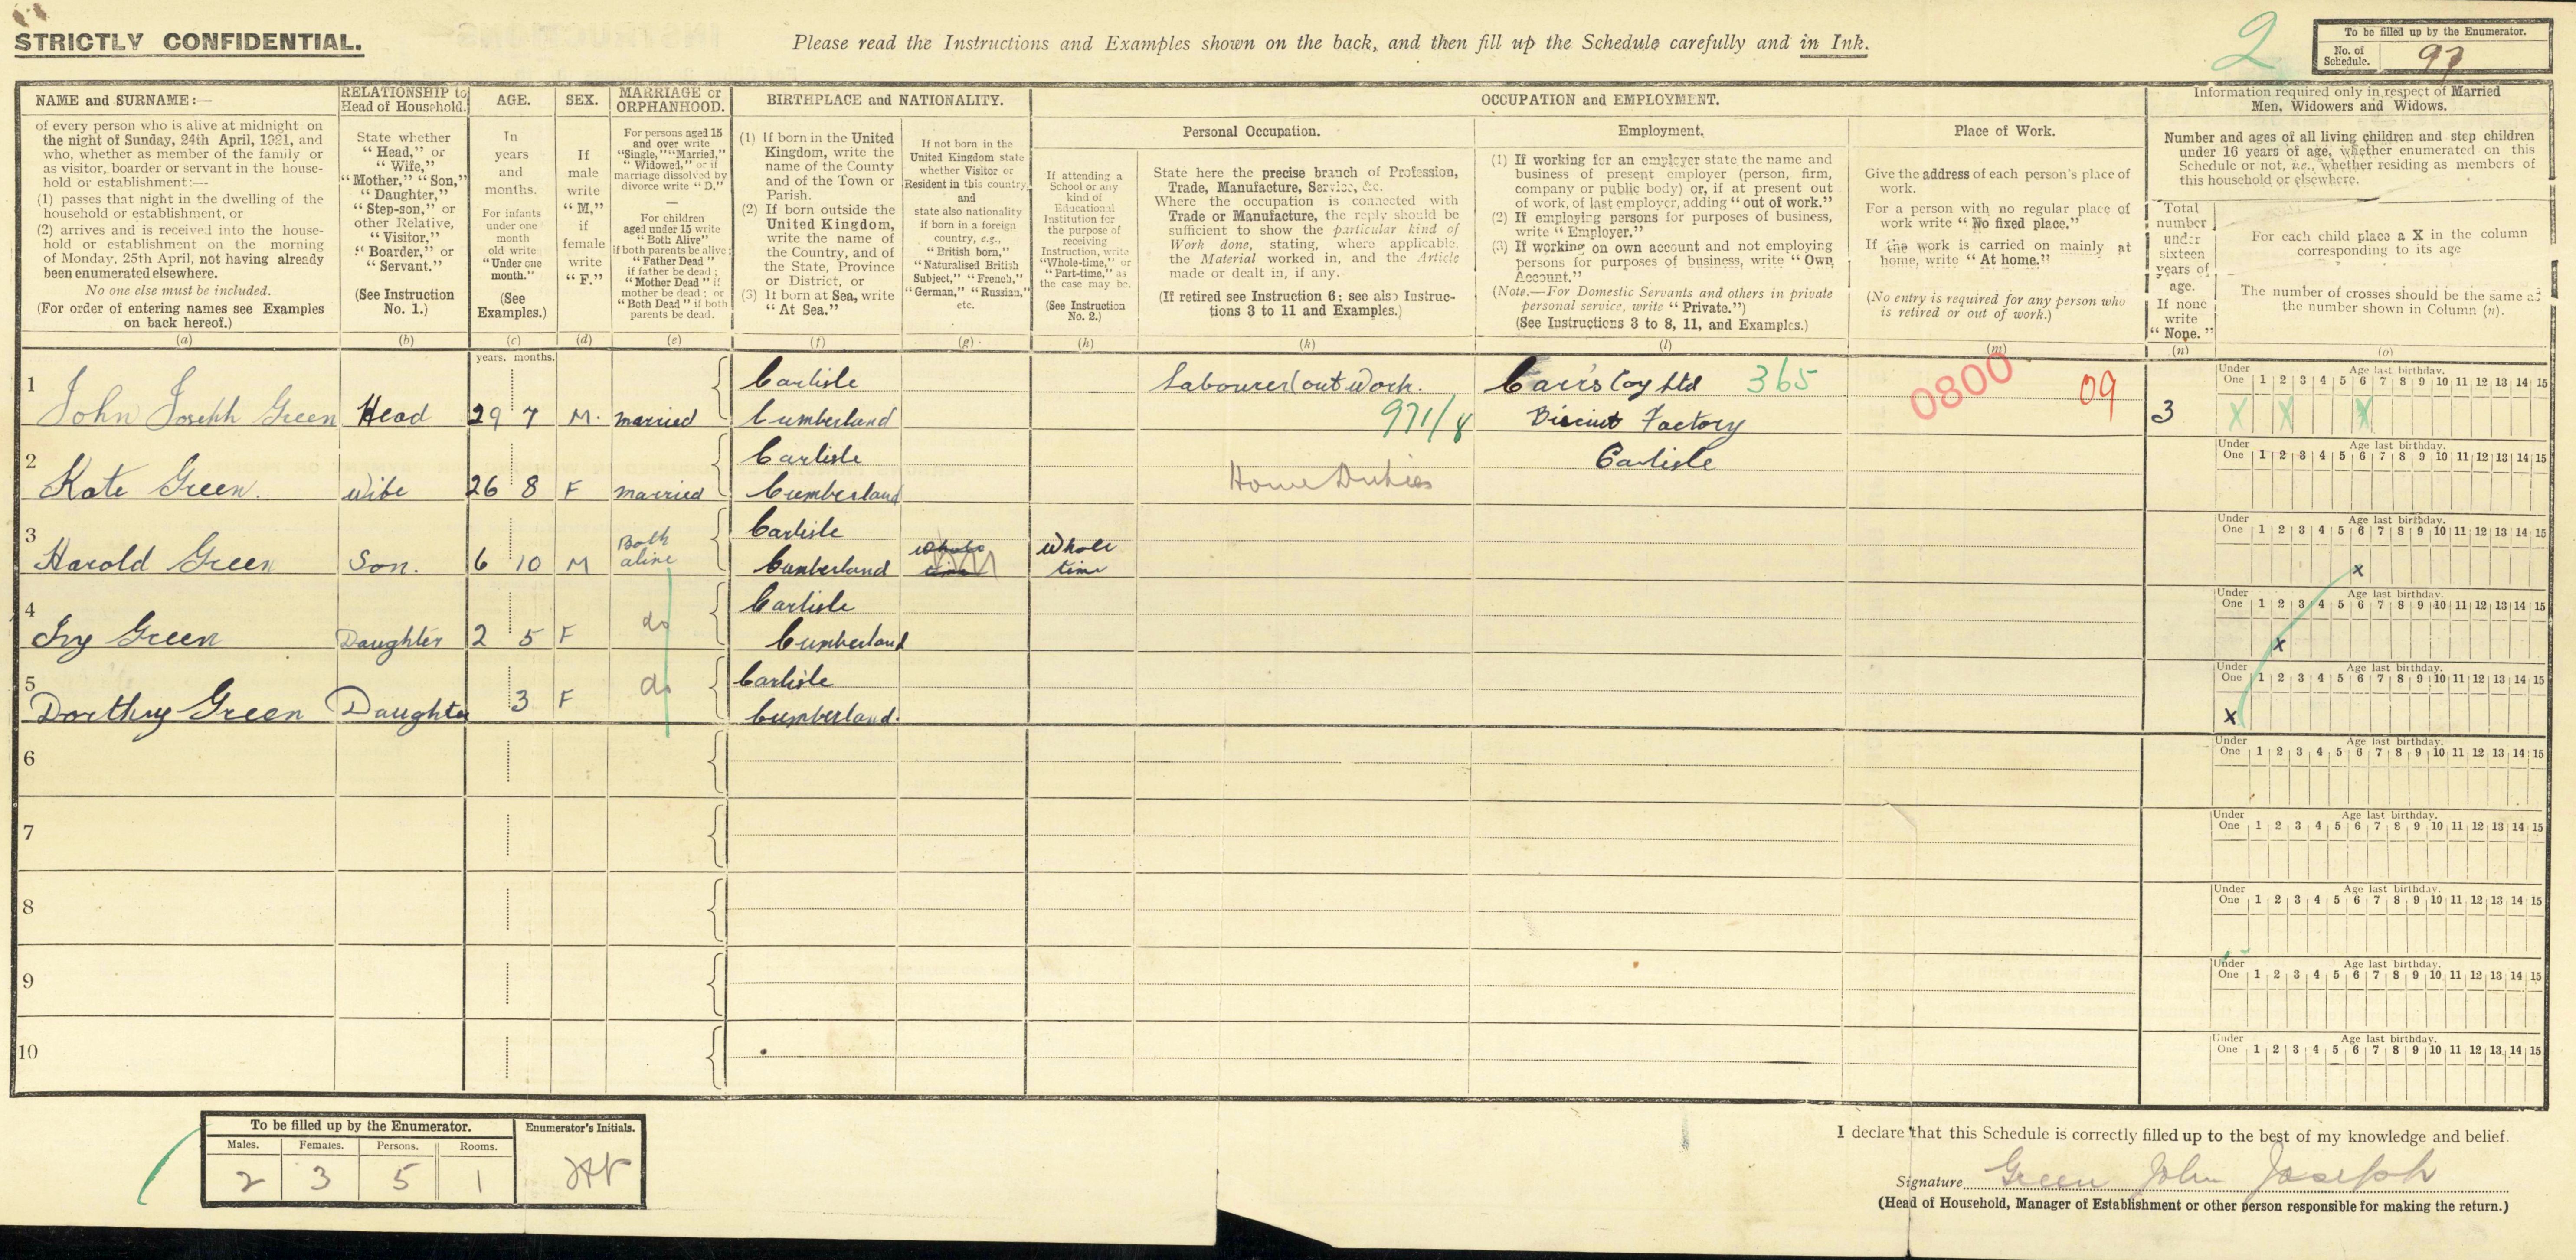 STRICTLY CONFIDENTIAL.
Please read the Instructions and Examples shown on the back, and then fill up the Schedule carefully and in Ink.
2
To be filled up by the Enumerator.
No. of Schedule.
97
NAME and SURNAME:—
of every person who is alive at midnight on
the night of Sunday, 24th April, 1921, and
who, whether as member of the family or
as visitor, boarder or servant in the house-
hold or establishment:—
(1) passes that night in the dwelling of the
household or establishment, or
(2) arrives and is received into the house-
hold or establishment on the morning
of Monday, 25th April, not having already
been enumerated elsewhere.
No one else must be included.
(For order of entering names see Examples
on back hereof.)
(a)
RELATIONSHIP to
Head of Household.
State whether
"Head," or
"Wife,"
"Mother," "Son,"
"Daughter,"
"Step-son," or
other Relative,
"Visitor,"
"Boarder," or
"Servant."
(See Instruction
No. 1.)
(b)
AGE.
In
years
and
months.
For infants
under one
month
old write
"Under one
month."
(See
Examples.)
(c)
SEX.
If
male
write
"M,"
if
female
write
"F."
(d)
MARRIAGE or
ORPHANHOOD.
For persons aged 15
and over write
"Single," "Married,"
"Widowed," or if
marriage dissolved by
divorce write "D."
—
For children
aged under 15 write
"Both Alive"
if both parents be alive;
"Father Dead"
if father be dead;
"Mother Dead" if
mother be dead; or
"Both Dead" if both
parents be dead.
(e)
BIRTHPLACE and NATIONALITY.
(1) If born in the United
Kingdom, write the
name of the County
and of the Town or
Parish.
(2) If born outside the
United Kingdom,
write the name of
the Country, and of
the State, Province
or District, or
(3) If born at Sea, write
"At Sea."
(f)
If not born in the
United Kingdom state
whether Visitor or
Resident in this country,
and
state also nationality
if born in a foreign
country, e.g.,
"British born,"
"Naturalised British
Subject," "French,"
"German," "Russian,"
etc.
(g)
OCCUPATION and EMPLOYMENT.
If attending a
School or any
kind of
Educational
Institution for
the purpose of
receiving
Instruction, write
"Whole-time," or
"Part-time," as
the case may be.
(See Instruction
No. 2.)
(h)
Personal Occupation.
State here the precise branch of Profession,
Trade, Manufacture, Service, &c.
Where the occupation is connected with
Trade or Manufacture, the reply should be
sufficient to show the particular kind of
Work done, stating, where applicable,
the Material worked in, and the Article
made or dealt in, if any.
(If retired see Instruction 6; see also Instruc-
tions 3 to 11 and Examples.)
(k)
Employment.
(1) If working for an employer state the name and
business of present employer (person, firm,
company or public body) or, if at present out
of work, of last employer, adding "out of work."
(2) If employing persons for purposes of business,
write "Employer."
(3) If working on own account and not employing
persons for purposes of business, write "Own
Account."
(Note.—For Domestic Servants and others in private
personal service, write "Private.")
(See Instructions 3 to 8, 11, and Examples.)
(l)
Place of Work.
Give the address of each person's place of
work.
For a person with no regular place of
work write "No fixed place."
If the work is carried on mainly at
home, write "At home."
(No entry is required for any person who
is retired or out of work.)
(m)
Information required only in respect of Married
Men, Widowers and Widows.
Number and ages of all living children and step children
under 16 years of age, whether enumerated on this
Schedule or not, i.e., whether residing as members of
this household or elsewhere.
Total
number
under
sixteen
years of
age.
If none
write
"None."
(n)
For each child place a X in the column
corresponding to its age
The number of crosses should be the same as
the number shown in Column (n).
(o)
years. months.
1 John Joseph Green Head 29 7 M. married Carlisle Cumberland Labourer (out Work. 971/8 Carr's Coy Ltd 365 Biscuit Factory Carlisle 0800 09 3
Under One 1 2 3 4 5 6 7 8 9 10 11 12 13 14 15 Age last birthday.
X X X
2 Kate Green. Wife 26 8 F married Carlisle Cumberland Home Duties
Under One 1 2 3 4 5 6 7 8 9 10 11 12 13 14 15 Age last birthday.
3 Harold Green Son. 6 10 M Both alive Carlisle Cumberland Whole time Whole time
Under One 1 2 3 4 5 6 7 8 9 10 11 12 13 14 15 Age last birthday.
x
4 Ivy Green Daughter 2 5 F do Carlisle Cumberland
Under One 1 2 3 4 5 6 7 8 9 10 11 12 13 14 15 Age last birthday.
x
5 Dorthry Green Daughter 3 F do Carlisle Cumberland.
Under One 1 2 3 4 5 6 7 8 9 10 11 12 13 14 15 Age last birthday.
x
6
Under One 1 2 3 4 5 6 7 8 9 10 11 12 13 14 15 Age last birthday.
7
Under One 1 2 3 4 5 6 7 8 9 10 11 12 13 14 15 Age last birthday.
8
Under One 1 2 3 4 5 6 7 8 9 10 11 12 13 14 15 Age last birthday.
9
Under One 1 2 3 4 5 6 7 8 9 10 11 12 13 14 15 Age last birthday.
10
Under One 1 2 3 4 5 6 7 8 9 10 11 12 13 14 15 Age last birthday.
To be filled up by the Enumerator.
Enumerator's Initials.
Males. Females. Persons. Rooms.
2 3 5 1
I declare that this Schedule is correctly filled up to the best of my knowledge and belief.
Signature Green John Joseph
(Head of Household, Manager of Establishment or other person responsible for making the return.)